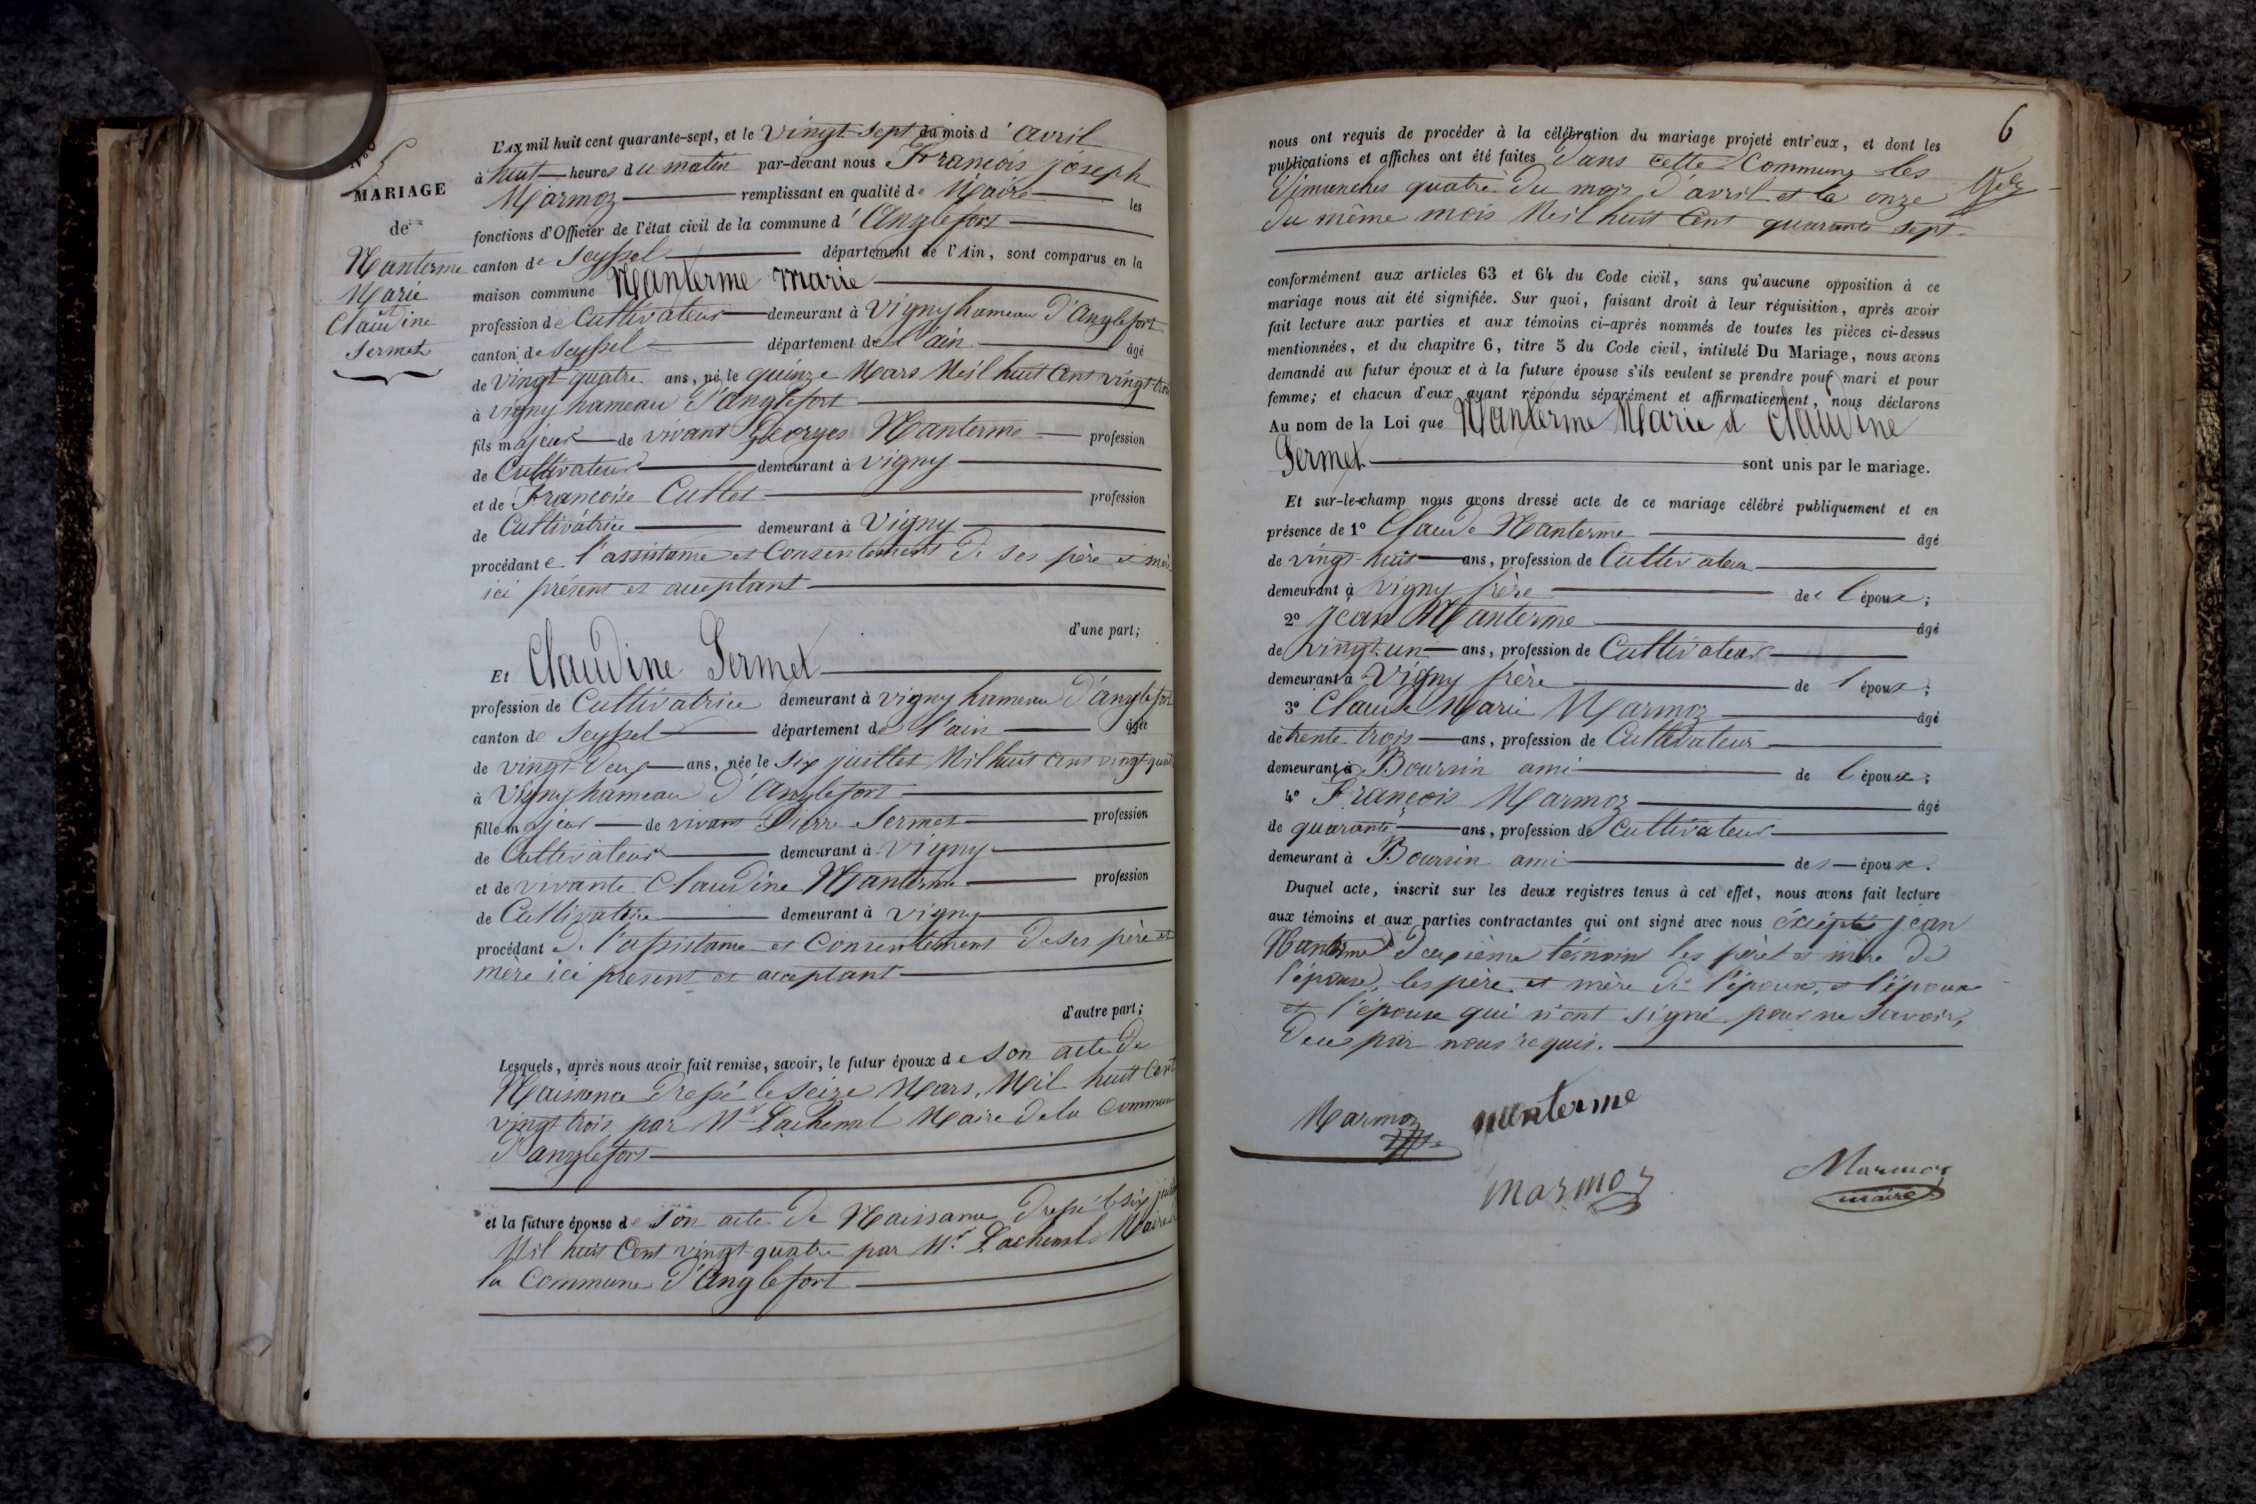 N.o 5
MARIAGE
de
Nanterme
Marie
et
Claudine
Sermet
L'AN mil huit cent quarante-sept, et le vingt sept du mois d'avril
à huit heures du matin par-devant nous François joseph
Marmoz remplissant en qualité de Maire les
fonctions d'Officier de l'état civil de la commune d'Anglefort
canton de Seyssel département de l'Ain, sont comparus en la
maison commune Nanterme Marie
profession de Cultivateur demeurant à Vigny hameau d'Anglefort
canton de Seyssel département de l'ain âgé
de vingt quatre ans, né le quinze Mars Mil huit Cent vingt trois
à vigny hameau d'anglefort
fils majeur de vivant Georges Nanterme profession
de Cultivateur demeurant à vigny
et de Françoise Cullet profession
de Cultivatrice demeurant à Vigny
procédant e l'assistance et Consentement de ses père et mère
ici présent et acceptant
d'une part;
Et Claudine Sermet
profession de Cultivatrice demeurant à vigny hameau d'anglefort
canton de Seyssel département de l'ain âgée
de vingt deux ans, née le Six juillet Mil huit Cent vingt quatre
à Vigny hameau d'Anglefort
fille majeur de vivant Pierre Sermet profession
de Cultivateur demeurant à Vigny
et de vivante Claudine Nanterme profession
de Cultivatrice demeurant à vigny
procédant de l'assistance et Consentement de ses père et
mère ici présent et acceptant
d'autre part;
Lesquels, après nous avoir fait remise, savoir, le futur époux de son acte de
Naissance Dressé le seize Mars, Mil huit Cent
vingt trois par Mr Lachenal Maire de la Commune
d'anglefort
et la future épouse de son acte de Naissance dressé le six juillet
Mil huit Cent vingt quatre par Mr. Lachenal Maire de
la Commune d'Anglefort
6
nous ont requis de procéder à la célébration du mariage projeté entr'eux, et dont les
publications et affiches ont été faites dans cette Commune les
Dimanches quatre du mois d'avril et le onze
du même mois Mil huit Cent quarante sept.
conformément aux articles 63 et 64 du Code civil, sans qu'aucune opposition à ce
mariage nous ait été signifiée. Sur quoi, faisant droit à leur réquisition, après avoir
fait lecture aux parties et aux témoins ci-après nommés de toutes les pièces ci-dessus
mentionnées, et du chapitre 6, titre 5 du Code civil, intitulé Du Mariage, nous avons
demandé au futur époux et à la future épouse s'ils veulent se prendre pour mari et pour
femme; et chacun d'eux ayant répondu séparément et affirmativement, nous déclarons
Au nom de la Loi que Nanterme Marie et Claudine
Sermet sont unis par le mariage.
Et sur-le-champ nous avons dressé acte de ce mariage célébré publiquement et en
présence de 1° Claude Nanterme âgé
de vingt huit ans, profession de Cultivateur
demeurant à Vigny frère de l'époux;
2° Jean Nanterme âgé
de vingt-un ans, profession de Cultivateur
demeurant à Vigny frère de l'époux;
3° Claude Marie Marmoz âgé
de trente trois ans, profession de Cultivateur
demeurant à Boursin ami de l'époux;
4° François Marmoz âgé
de quarante ans, profession de cultivateur
demeurant à Boursin ami des époux.
Duquel acte, inscrit sur les deux registres tenus à cet effet, nous avons fait lecture
aux témoins et aux parties contractantes qui ont signé avec nous excepté Jean
Nanterme deuxième témoin les père et mère de
l'épouse, les père et mère de l'époux, et l'époux
et l'épouse qui n'ont signé pour ne savoir,
Deces par nous requis.
Marmoz nenterme
marmoz Marmoz
maire